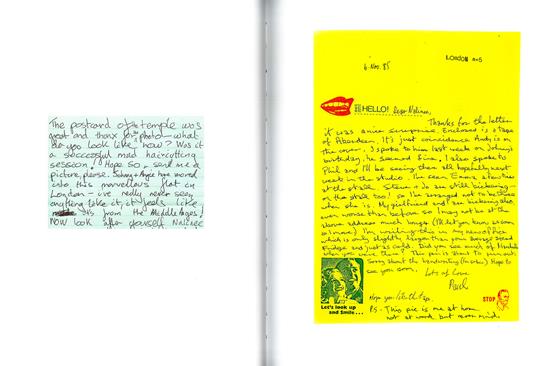 The postcard of the temple was
great and thanx for the photo - what
do you look like now? Was it
a successful mad haircutting
session? Hope so, send me a
picture, please. Johnny + Angie have moved
into this marvellous flat in
London - ive really never seen
anything like it, it feels like
its from the Middle Ages!
NOW look after yourself
6. Nov. 85
LONDON
HELLO! Dear
Thanks for the letter
it was a nice surprise. Enclosed is a tape
of Aberdeen. It's just coincidence Andy is on
the cover. I spoke to him last week on Johnny's
birthday, he seemed fine. I also spoke to
Phil and I'll be seeing them all hopefully next
week in the studio. I've seen Emma a few times
at the stall. Steve + Jo are still bickering -
on the stall too! so I've arranged not to be there
when she is. My girlfriend and I are bickering also,
even worse than before so I may not be at the
above address much longer (I'll let you know as soon
as I move). I'm writing this in my new office
which is only slightly larger than your average
Fridge and just as cold. Did you see much of
when you were there? This pen is about to run out.
Sorry about the handwriting Hope to
see you soon.
Lots of Love
Let's look up
and Smile...
STOP
Hope you like the tape.
P.S - This pic is me at home
not at work but never mind.